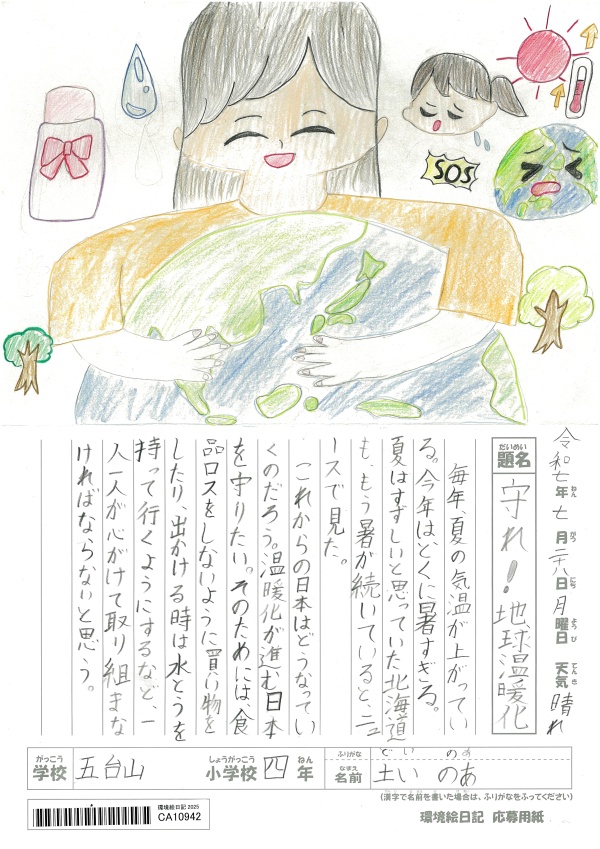 SOS
令和七年七月二八日月曜日 天気晴れ
ねん
がつ
にち
ようび
てんき
だいめい
題名
守れ!地球温暖化
毎年、夏の気温が上がってい
る。今年は、とくに暑すぎる。
夏はすずしいと思っていた北海道
も、もう暑が続いていると、ニュ
ースで見た。
これからの日本はどうなってい
くのだろう。温暖化が進む日本
を守りたい。そのためには、食
品ロスをしないように買い物を
したり、出かける時は水とうを
持って行くようにするなど、一
人一人が心がけて取り組まな
ければならないと思う。
がっこう
学校
五台山
しょうがっこう
小学校
四
ねん
年
ふりがな
どい のあ
なまえ
名前
土い のあ
(漢字で名前を書いた場合は、ふりがなをふってください)
環境絵日記 2025
CA10942
環境絵日記 応募用紙